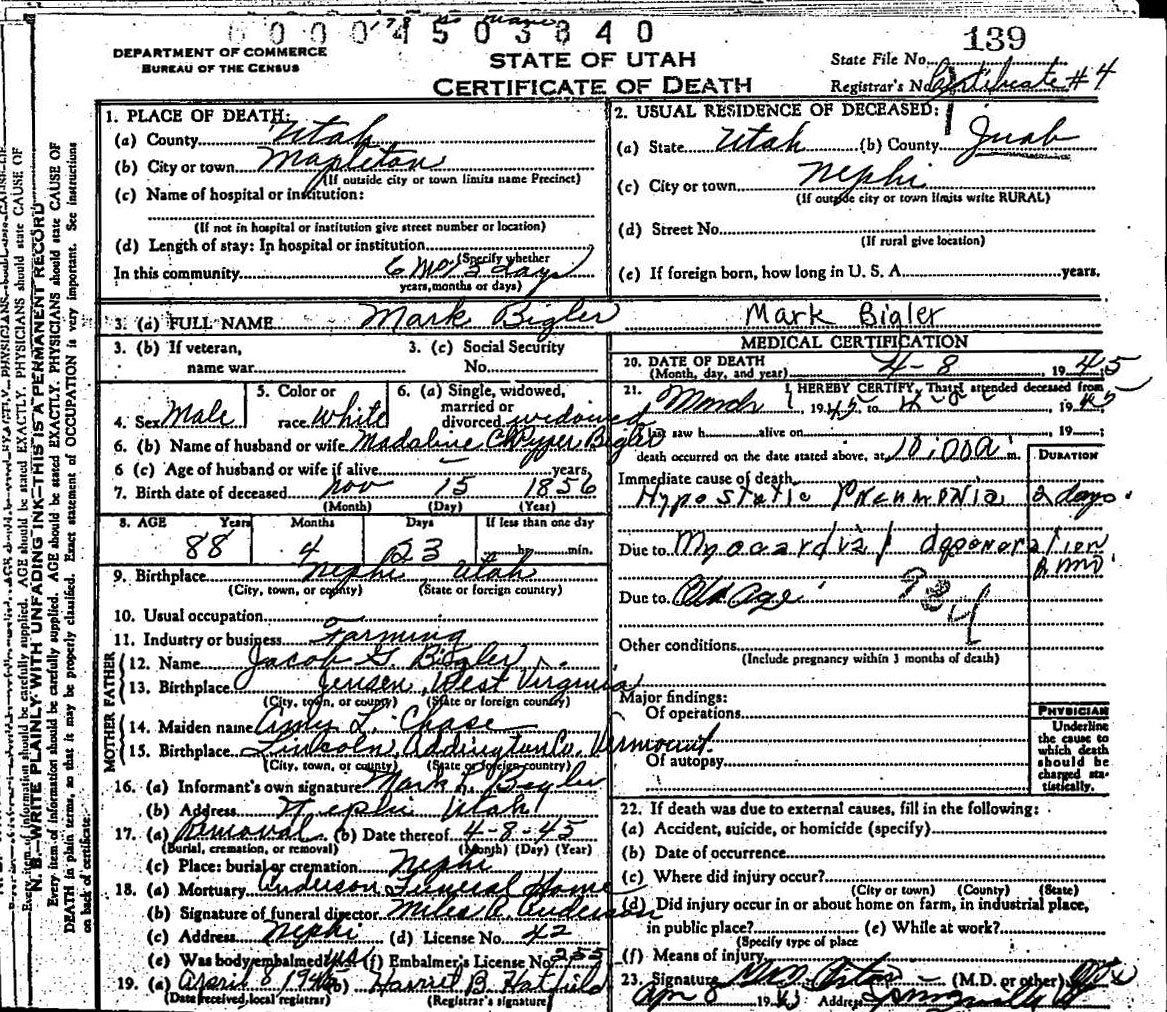 0 0 0 0 4 5 0 3 8 4 0
139
DEPARTMENT OF COMMERCE
BUREAU OF THE CENSUS
STATE OF UTAH
CERTIFICATE OF DEATH
State File No.
Registrar's No. Certificate #4
1. PLACE OF DEATH:
(a) County Utah
(b) City or town Mapleton
(If outside city or town limits name Precinct)
(c) Name of hospital or institution:
(If not in hospital or institution give street number or location)
(d) Length of stay: In hospital or institution
(Specify whether
In this community 6 mo days
years, months or days)
2. USUAL RESIDENCE OF DECEASED:
(a) State Utah (b) County Juab
(c) City or town Nephi
(If outside city or town limits write RURAL)
(d) Street No.
(If rural give location)
(e) If foreign born, how long in U. S. A. years.
3. (a) FULL NAME Mark Bigler Mark Bigler
3. (b) If veteran,
name war
3. (c) Social Security
No.
4. Sex Male
5. Color or
race White
6. (a) Single, widowed,
married or
divorced widowed
6. (b) Name of husband or wife Madaline Bigler
6 (c) Age of husband or wife if alive years,
7. Birth date of deceased Nov 15 1856
(Month) (Day) (Year)
8. AGE Years Months Days If less than one day
88 4 23 h. min.
9. Birthplace Nephi Utah
(City, town, or county) (State or foreign country)
10. Usual occupation
11. Industry or business Farming
FATHER
12. Name Jacob G. Bigler
13. Birthplace Jensen, West Virginia
(City, town, or county) (State or foreign country)
MOTHER
14. Maiden name Amy L. Chase
15. Birthplace Lincoln, Addington Co. Vermount.
(City, town, or county) (State or foreign country)
16. (a) Informant's own signature Mark L. Bigler
(b) Address Nephi Utah
17. (a) Removal (b) Date thereof 4-8-45
(Burial, cremation, or removal) (Month) (Day) (Year)
(c) Place: burial or cremation Nephi
18. (a) Mortuary Anderson Funeral Home
(b) Signature of funeral director Miles A. Anderson
(c) Address Nephi (d) License No. 42
(e) Was body embalmed yes (f) Embalmer's License No. 255
19. (a) April 8 1945 (b) Harriet B. Hatfield
(Date received, local registrar) (Registrar's signature)
MEDICAL CERTIFICATION
20. DATE OF DEATH
(Month, day, and year) 4-8 1945
21. I HEREBY CERTIFY, That I attended deceased from
March 1, 1945, to 4-8 1945
I last saw h alive on 19 ;
death occurred on the date stated above, at 10:00a m.
DURATION
Immediate cause of death
Hypostatic Pneumonia 2 days.
Due to Myocardial degeneration
2 mo.
Due to Old Age 934
Other conditions
(Include pregnancy within 3 months of death)
Major findings:
Of operations
Of autopsy
PHYSICIAN
Underline
the cause to
which death
should be
charged sta-
tistically.
22. If death was due to external causes, fill in the following:
(a) Accident, suicide, or homicide (specify)
(b) Date of occurrence
(c) Where did injury occur?
(City or town) (County) (State)
(d) Did injury occur in or about home on farm, in industrial place,
in public place? (e) While at work?
(Specify type of place
(f) Means of injury
23. Signature (M.D. or other)
Apr 8 19 Address
Every item of information should be carefully supplied. AGE should be stated EXACTLY. PHYSICIANS should state CAUSE OF
N. B.—WRITE PLAINLY WITH UNFADING INK—THIS IS A PERMANENT RECORD
Every item of information should be carefully supplied. AGE should be stated EXACTLY. PHYSICIANS should state CAUSE OF
DEATH in plain terms, so that it may be properly classified. Exact statement of OCCUPATION is very important. See instructions
on back of certificate.